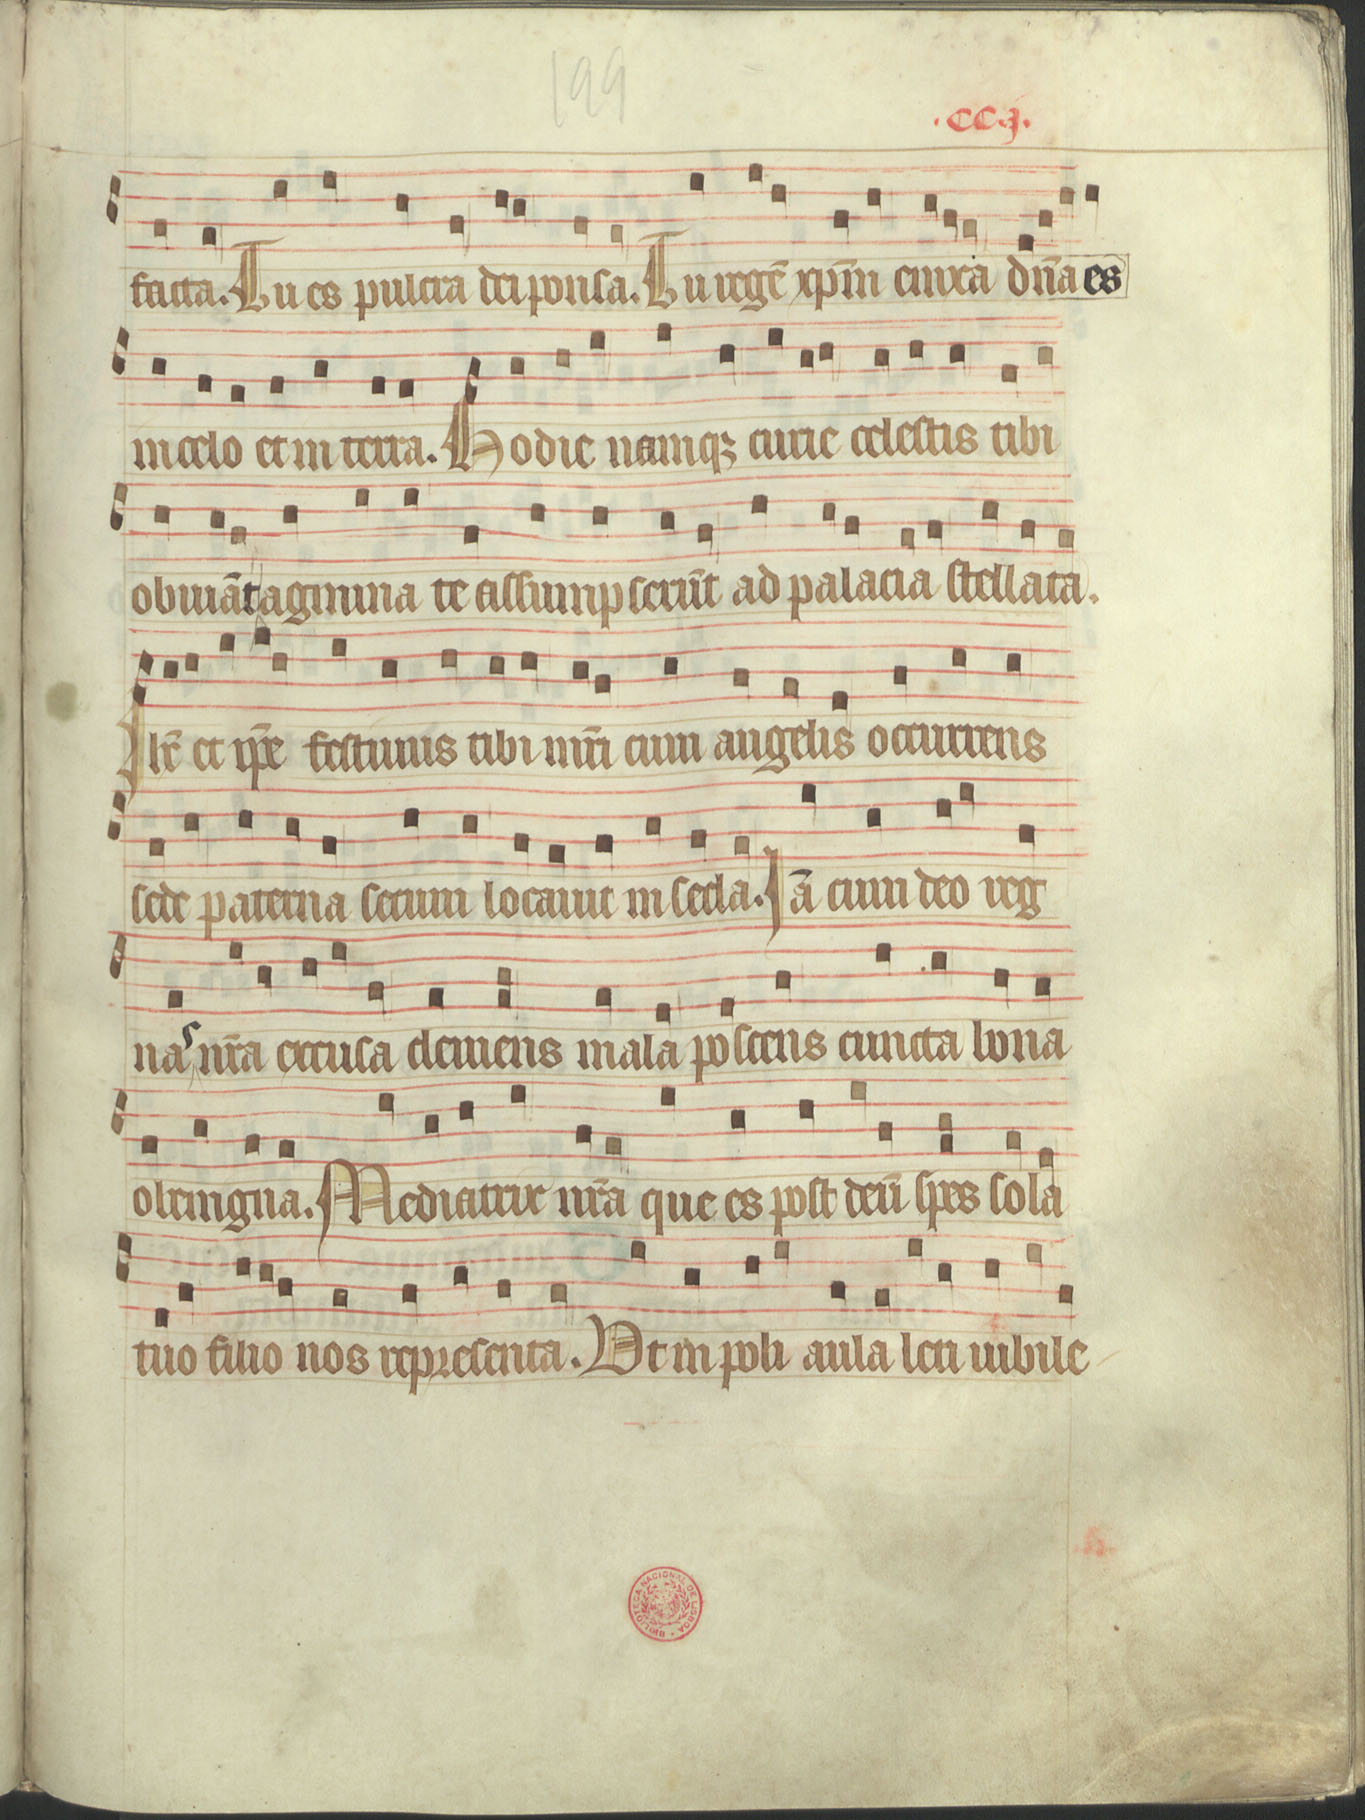 199
.CCJ.
facta. Tu es pulcra dei sponsa. Tu regē xp̄m enixa dn̄a es
in celo et in terra. Hodie namqꝫ curie celestis tibi
obuiāt agmina te assumpserūt ad palacia stellata.
Ihc̄ et ip̄e festiuus tibi mr̄i cum angelis occurrens
sede paterna secum locauit in secla. Iā cum deo reg
nas nr̄a excusa clemens mala poscens cuncta bona
o benigna. Mediatrix nr̄a que es post deū spes sola
tuo filio nos representa. Vt in poli aula leti iubile
BIBLIOTECA NACIONAL DE LISBOA